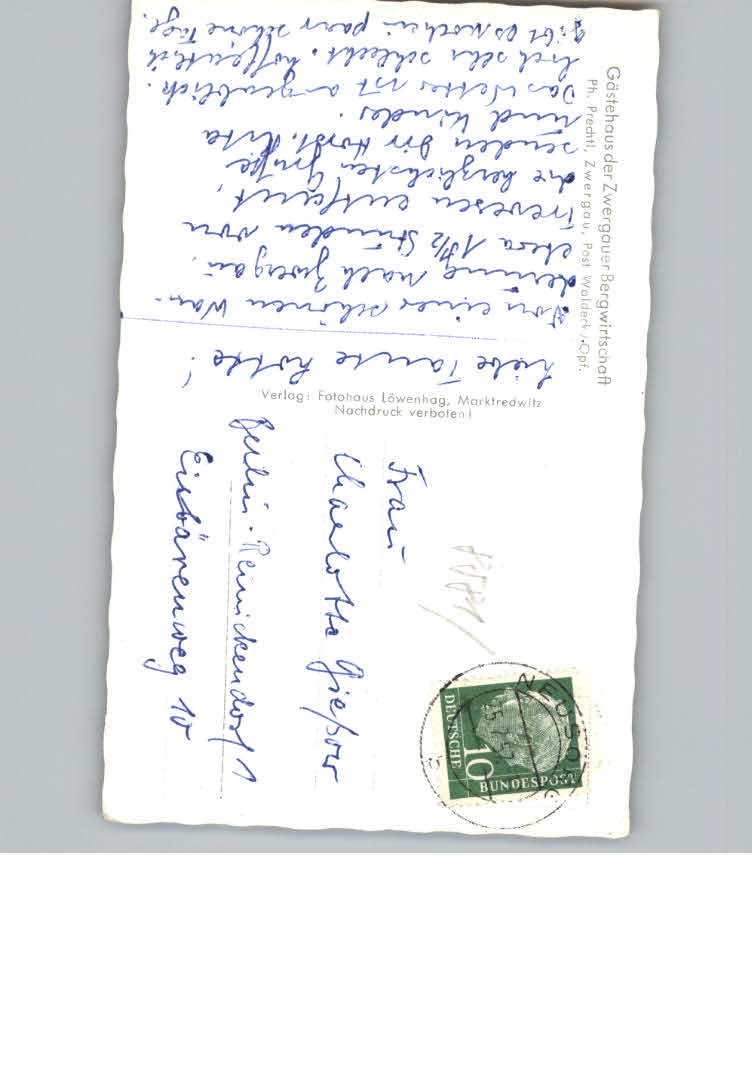 Gästehaus der Zwergauer Bergwirtschaft
Ph. Prechtl, Zwergau, Post Waldeck/Opf.
Liebe Tante Lotte!
Von einer schönen Wan-
derung nach Zwergau,
etwa 1 1/2 Stunden von
Trevesen entfernt,
die herzlichsten Grüße
senden Dir Horst, Rita
und Kinder.
Das Wetter ist augenblick-
lich sehr schlecht. Hoffentlich
gibt es noch ein paar schöne Tage.
Verlag: Fotohaus Löwenhag, Marktredwitz
Nachdruck verboten!
Frau
Charlotte Giepow
Berlin-Reinickendorf 1
Eisbärenweg 10
NEUSORG
DEUTSCHE
10
BUNDESPOST